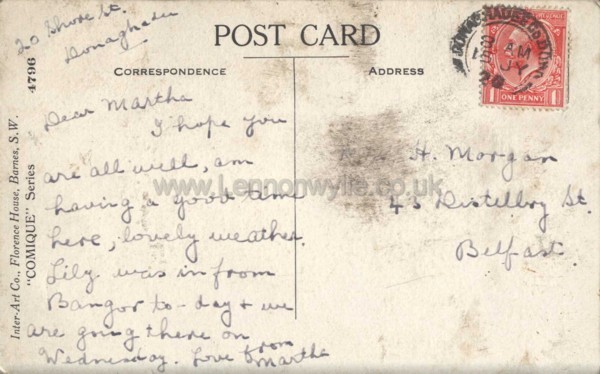 20 Shore St.
Donaghadee
POST CARD
CORRESPONDENCE
ADDRESS
Dear Martha
I hope you
are all well, am
having a good time
here, lovely weather.
Lily was in from
Bangor to-day & we
are going there on
Wednesday. Love from
Martha
H. Morgan
45 Distillery St.
Belfast
Inter-Art Co., Florence House, Barnes, S.W.
"COMIQUE" Series 4796
DONAGHADEE CO DOWN
AM
JY
ONE PENNY
www.Lennonwylie.co.uk